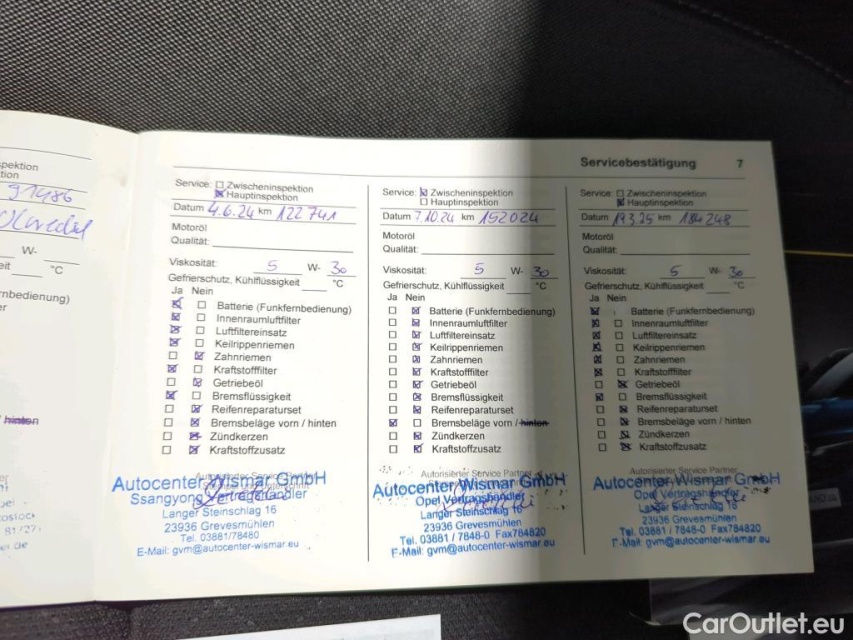 Servicebestätigung 7
pektion
tion
91486
W-
eit °C
nbedienung)
er
hinten
Service: Zwischeninspektion
Hauptinspektion
Datum 4.6.24 km 122 741
Motoröl
Qualität:
Viskosität: 5 W- 30
Gefrierschutz, Kühlflüssigkeit °C
Ja Nein
Batterie (Funkfernbedienung)
Innenraumluftfilter
Luftfiltereinsatz
Keilrippenriemen
Zahnriemen
Kraftstofffilter
Getriebeöl
Bremsflüssigkeit
Reifenreparaturset
Bremsbeläge vorn / hinten
Zündkerzen
Kraftstoffzusatz
Autorisierter Service Partner
Autocenter Wismar GmbH
Ssangyong Vertragshändler
Langer Steinschlag 16
23936 Grevesmühlen
Tel. 03881/78480
E-Mail: gvm@autocenter-wismar.eu
Service: Zwischeninspektion
Hauptinspektion
Datum 7.10.24 km 152024
Motoröl
Qualität:
Viskosität: 5 W- 30
Gefrierschutz, Kühlflüssigkeit °C
Ja Nein
Batterie (Funkfernbedienung)
Innenraumluftfilter
Luftfiltereinsatz
Keilrippenriemen
Zahnriemen
Kraftstofffilter
Getriebeöl
Bremsflüssigkeit
Reifenreparaturset
Bremsbeläge vorn / hinten
Zündkerzen
Kraftstoffzusatz
Autorisierter Service Partner
Autocenter Wismar GmbH
Opel Vertragshändler
Langer Steinschlag 16
23936 Grevesmühlen
Tel. 03881 / 7848-0 Fax784820
E-Mail: gvm@autocenter-wismar.eu
Service: Zwischeninspektion
Hauptinspektion
Datum 19.3.25 km 184 248
Motoröl
Qualität:
Viskosität: 5 W- 30
Gefrierschutz, Kühlflüssigkeit °C
Ja Nein
Batterie (Funkfernbedienung)
Innenraumluftfilter
Luftfiltereinsatz
Keilrippenriemen
Zahnriemen
Kraftstofffilter
Getriebeöl
Bremsflüssigkeit
Reifenreparaturset
Bremsbeläge vorn / hinten
Zündkerzen
Kraftstoffzusatz
Autorisierter Service Partner
Autocenter Wismar GmbH
Opel Vertragshändler
Langer Steinschlag 16
23936 Grevesmühlen
Tel. 03881 / 7848-0 Fax784820
E-Mail: gvm@autocenter-wismar.eu
CarOutlet.eu